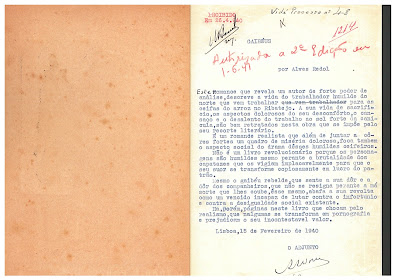 Vide Processo nº
RECEBIDO
GAIBÉUS
Autorizada a 2ª Edição em
1-6-41
por Alves Redol
Este Romance que revela um autor de forte poder de
análise, descreve a vida do trabalhador humilde do
norte que vem trabalhar que vem trabalhador para as
ceifas do arroz no Ribatejo. A sua vida de sacrifí-
cio, os aspectos dolorosos do seu desconforto, o cansa-
ço e o desalento do trabalho ao sol forte da canícula,
são bem retratados nesta obra que se impõe pelo
seu recorte literário.
É um romance realista que além de juntar a cô-
res fortes um quadro de miséria dolorosa, foca tambem
o aspecto social do drama dêsses humildes ceifeiros.
Não é um livro revolucionário porque os persona-
gens são humildes mesmo perante a brutalidade dos
capatazes que os vigiam implacavelmente para que o
seu suor se transforme copiosamente em lucro do pa-
trão.
Mesmo o gaibéu rebelde, que sente a sua dôr e a
dôr dos companheiros, que não se resigna perante a má
sorte que lhes coube, êsse mesmo, abafa a sua revolta
como um vencido incapaz de lutar contra o infortunio
e contra a desigualdade social existente.
Ha, porém, páginas neste livro que chocam pelo
realismo, que nalgumas se transforma em pornografia
e prejudicam o seu incontestavel valor.
Lisboa, 15 de Fevereiro de 1940
O ADJUNTO